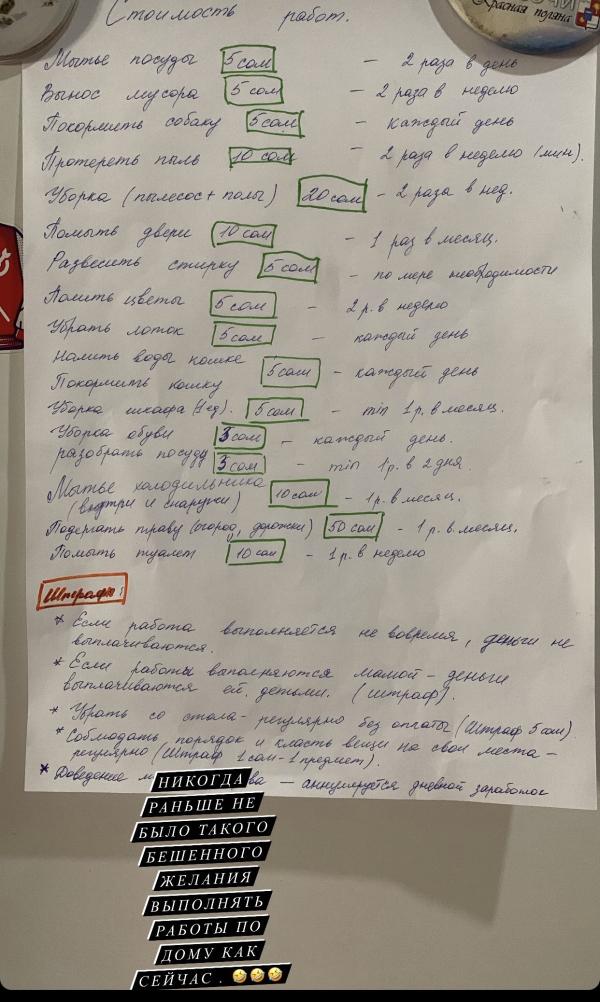 Стоимость работ.
Красная поляна
Мытье посуды 5 сом - 2 раза в день
Вынос мусора 5 сом - 2 раза в неделю
Покормить собаку 5 сом - каждый день
Протереть пыль 10 сом - 2 раза в неделю (мин).
Уборка (пылесос + полы) 20 сом - 2 раза в нед.
Помыть двери 10 сом - 1 раз в месяц.
Развесить стирку 5 сом - по мере необходимости
Полить цветы 5 сом - 2 р. в неделю
Убрать лоток 5 сом - каждый день
Налить воды кошке
Покормить кошку 5 сом - каждый день
Уборка шкафа (1ед). 5 сом - min 1 р. в месяц.
Уборка обуви 3 сом - каждый день.
разобрать посуду 3 сом - min 1 р. в 2 дня
Мытье холодильника
(внутри и снаружи) 10 сом - 1 р. в месяц.
Подергать траву (огород, дорожки) 50 сом - 1 р. в месяц.
Помыть туалет 10 сом - 1 р. в неделю
Штрафы:
* Если работа выполняется не вовремя, деньги не
выплачиваются.
* Если работы выполняются мамой - деньги
выплачиваются ей детьми. (штраф).
* Убрать со стола - регулярно без оплаты (Штраф 5 сом).
* Соблюдать порядок и класть вещи на свои места -
регулярно (Штраф 1 сом - 1 предмет).
* Доведение - аннулируется дневной заработок
НИКОГДА
РАНЬШЕ НЕ
БЫЛО ТАКОГО
БЕШЕННОГО
ЖЕЛАНИЯ
ВЫПОЛНЯТЬ
РАБОТЫ ПО
ДОМУ КАК
СЕЙЧАС . 🤣🤣🤣